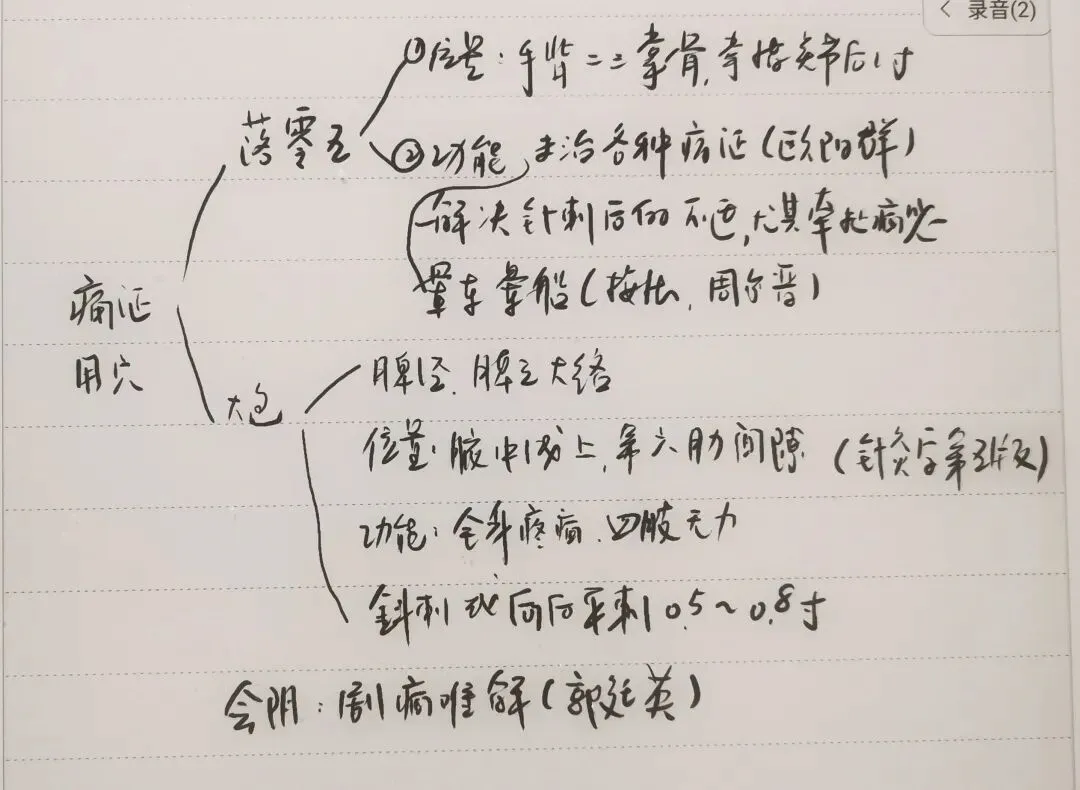 < 录音(2)
①位置：手背二三掌骨，掌指关节后1寸
落零五
②功能，主治各种痛证(欧阳群)
解决针刺后的不适，尤其牵扯痛
晕车晕船(按压，周尔晋)
痛证
用穴
大包
脾经，脾之大络
位置：腋中线上，第六肋间隙(针灸学第五版)
功能：全身疼痛，四肢无力
斜刺或向后平刺0.5～0.8寸
会阴：剧痛难解(郭廷英)